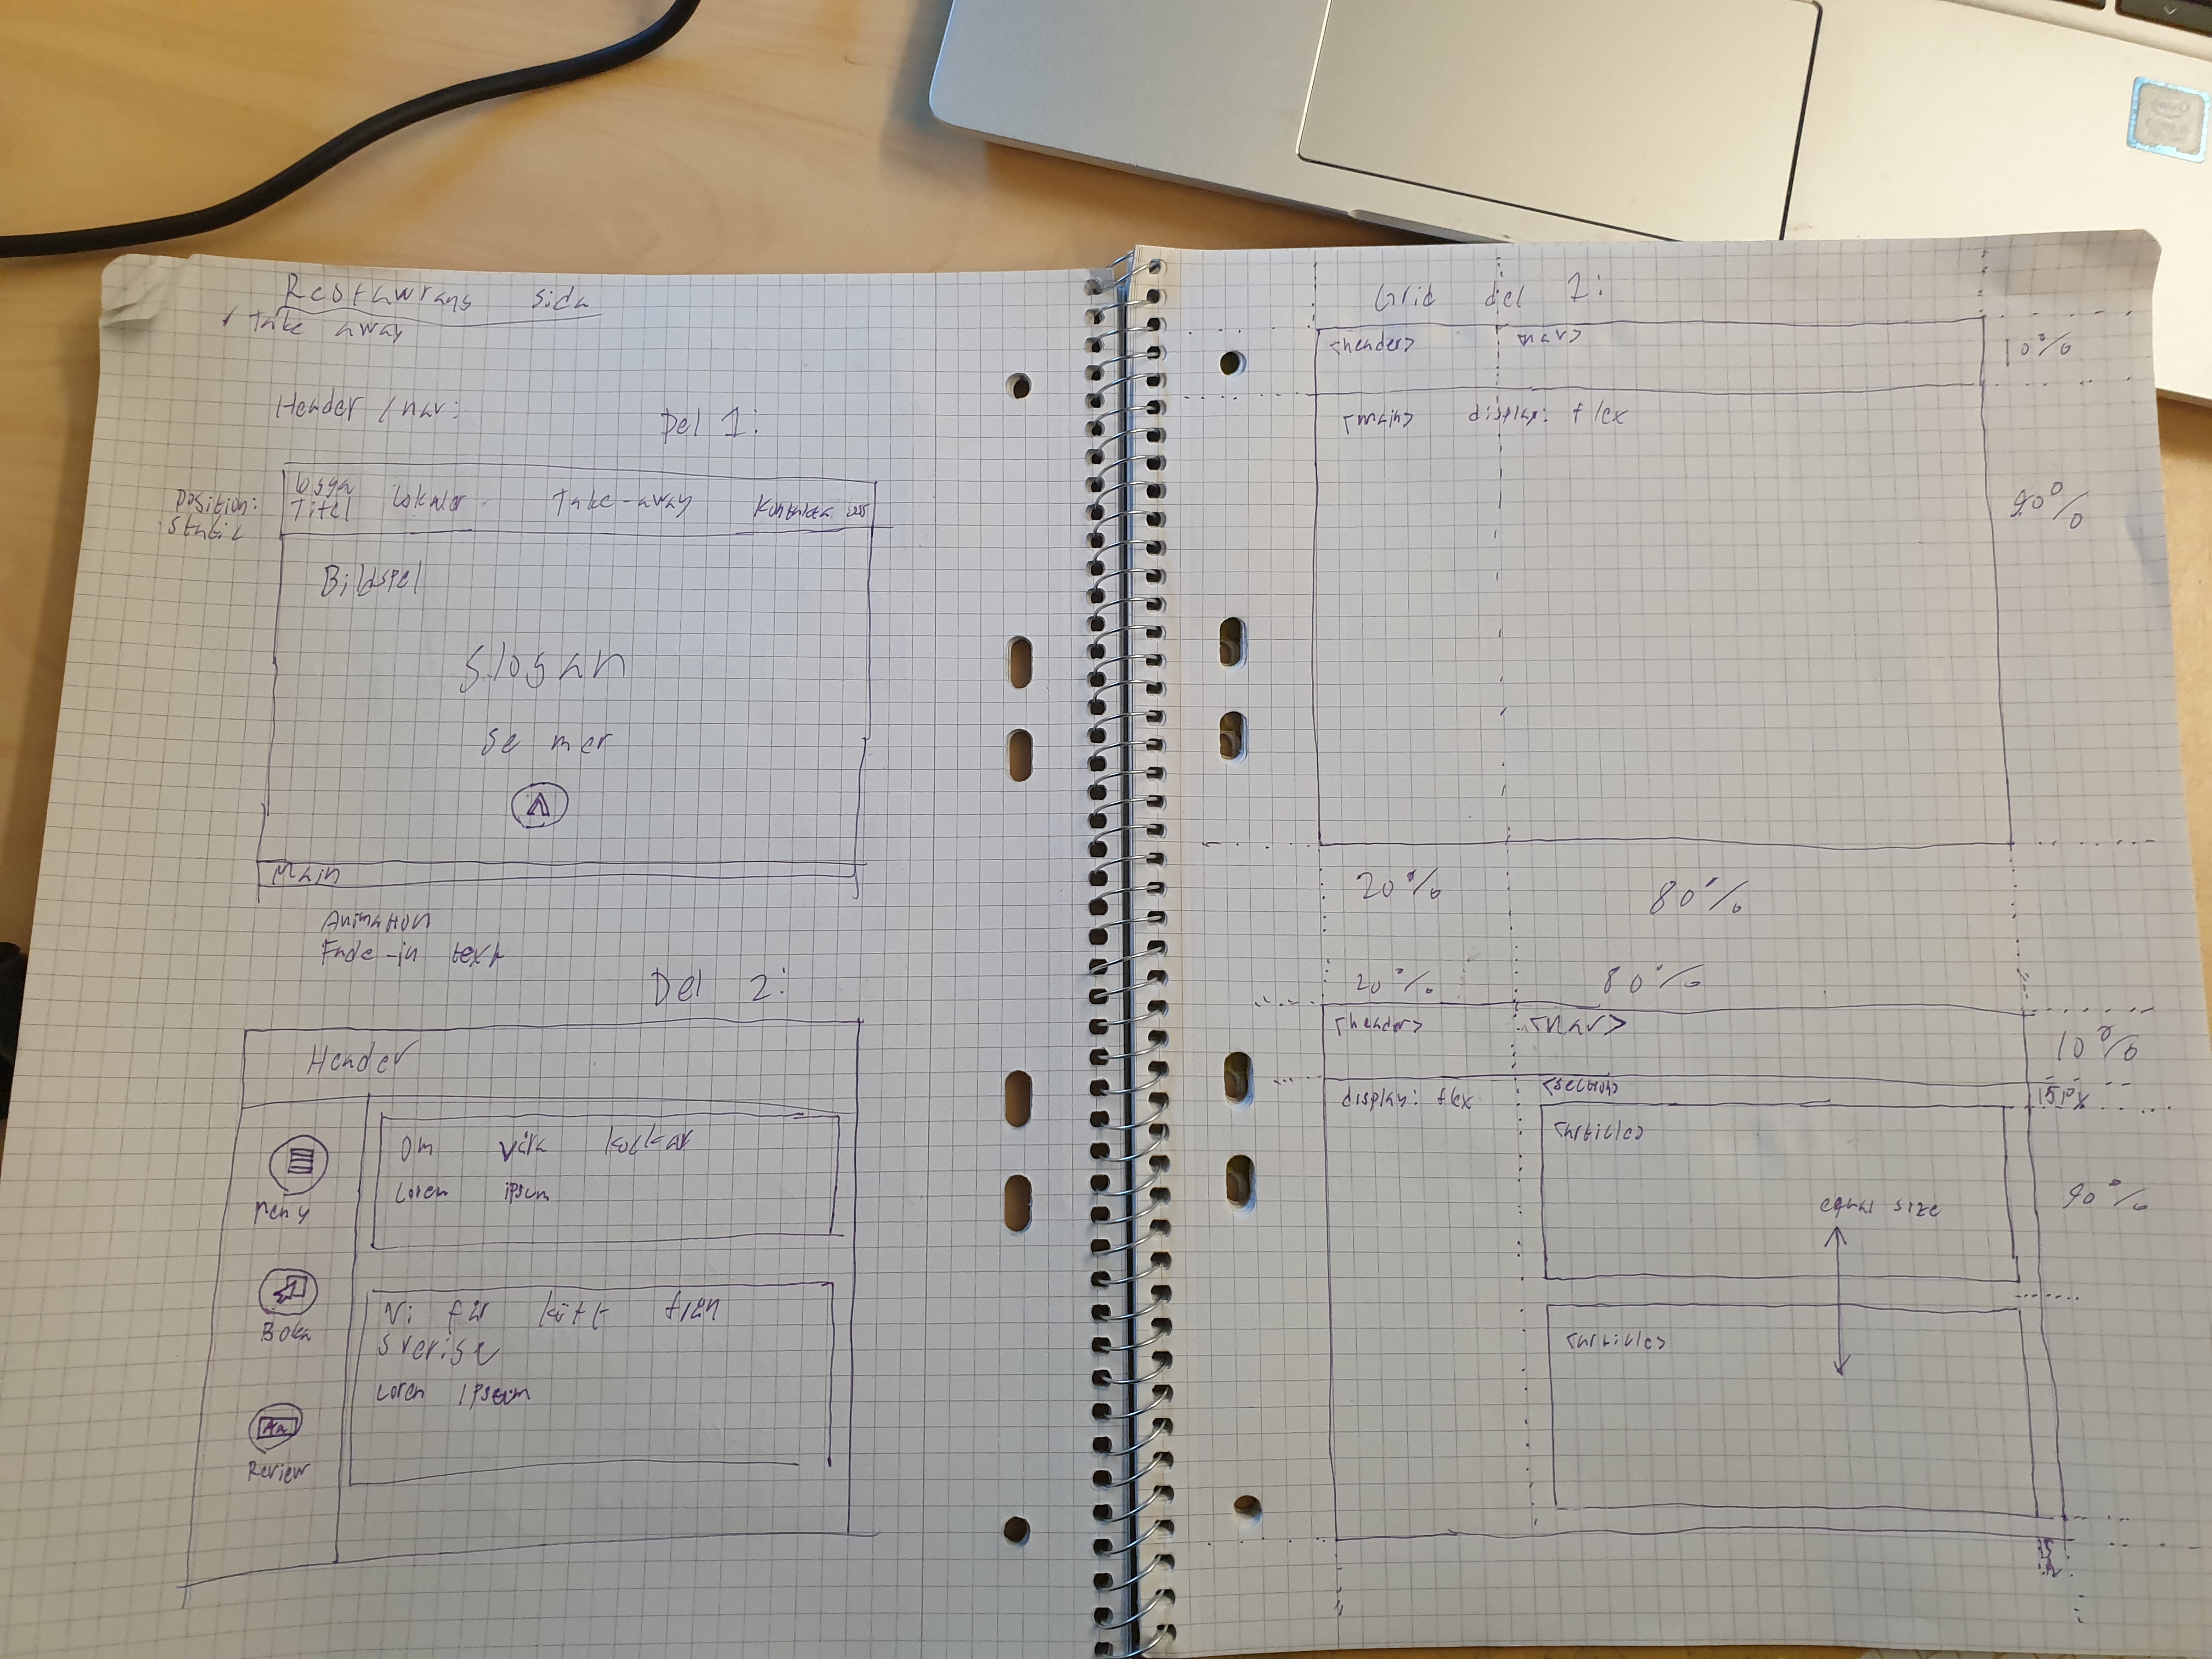 Restawrang sida
Take away
Header / nav:
Del 1:
position:
static
Logga
Titel
Lokaler
Take-away
Kontakta oss
Bildspel
Slogan
Se mer
Main
Animation
Fade-in text
Del 2:
Header
Om våra kockar
Lorem ipsum
Meny
Vi får kött från
Sverige
Lorem ipsum
Boka
Review
Grid del 1:
<header> <nav>
10%
<main> display: flex
90%
20% 80%
20% 80%
<header> <nav>
10%
<section>
15px
display: flex
<article>
equal size
90%
<article>